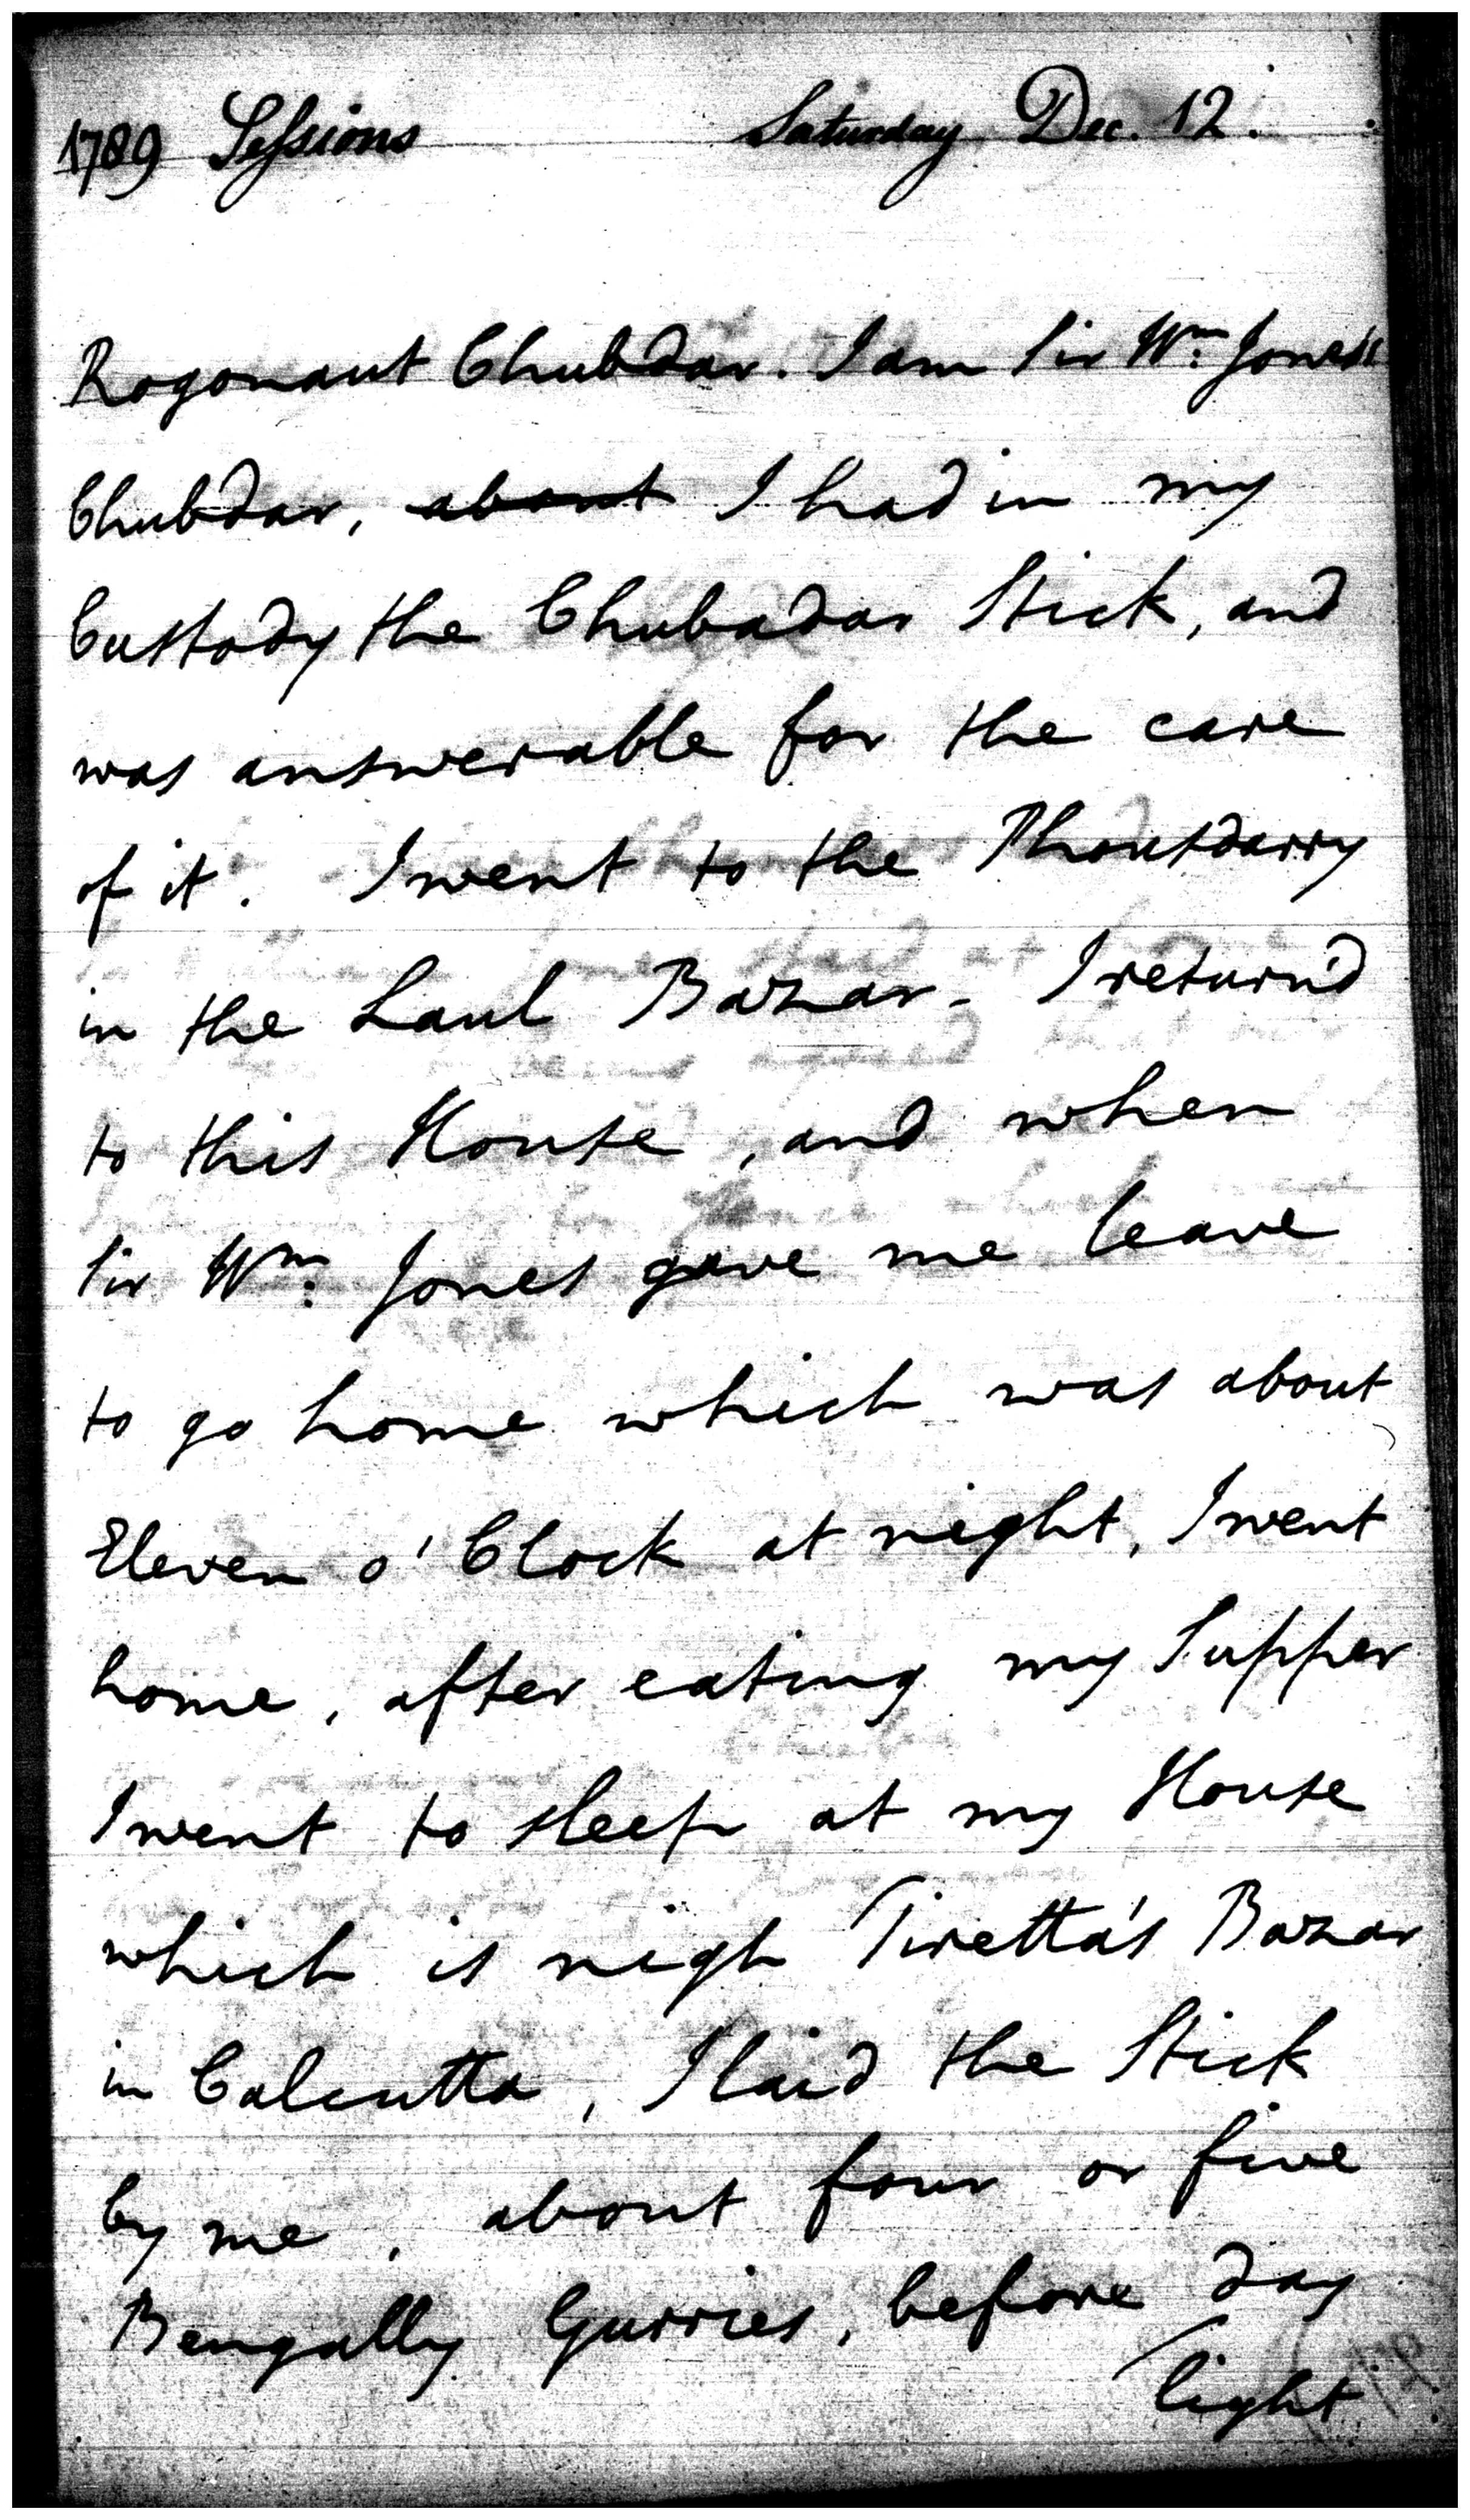 1789 Sessions Saturday Dec. 12.
Rogonaut Chubdar. I am Sir Wm: Jones's
Chubdar, about I had in my
Custody the Chubadar Stick, and
was answerable for the care
of it. I went to the Phousdarry
in the Laul Bazar - I return'd
to this House, and when
Sir Wm: Jones gave me leave
to go home which was about
Eleven o'Clock at night, I went
home, after eating my Supper
I went to sleep at my House
which is nigh Tiretta's Bazar
in Calcutta, I laid the Stick
by me, about four or five
Bengally Gurries, before day
light